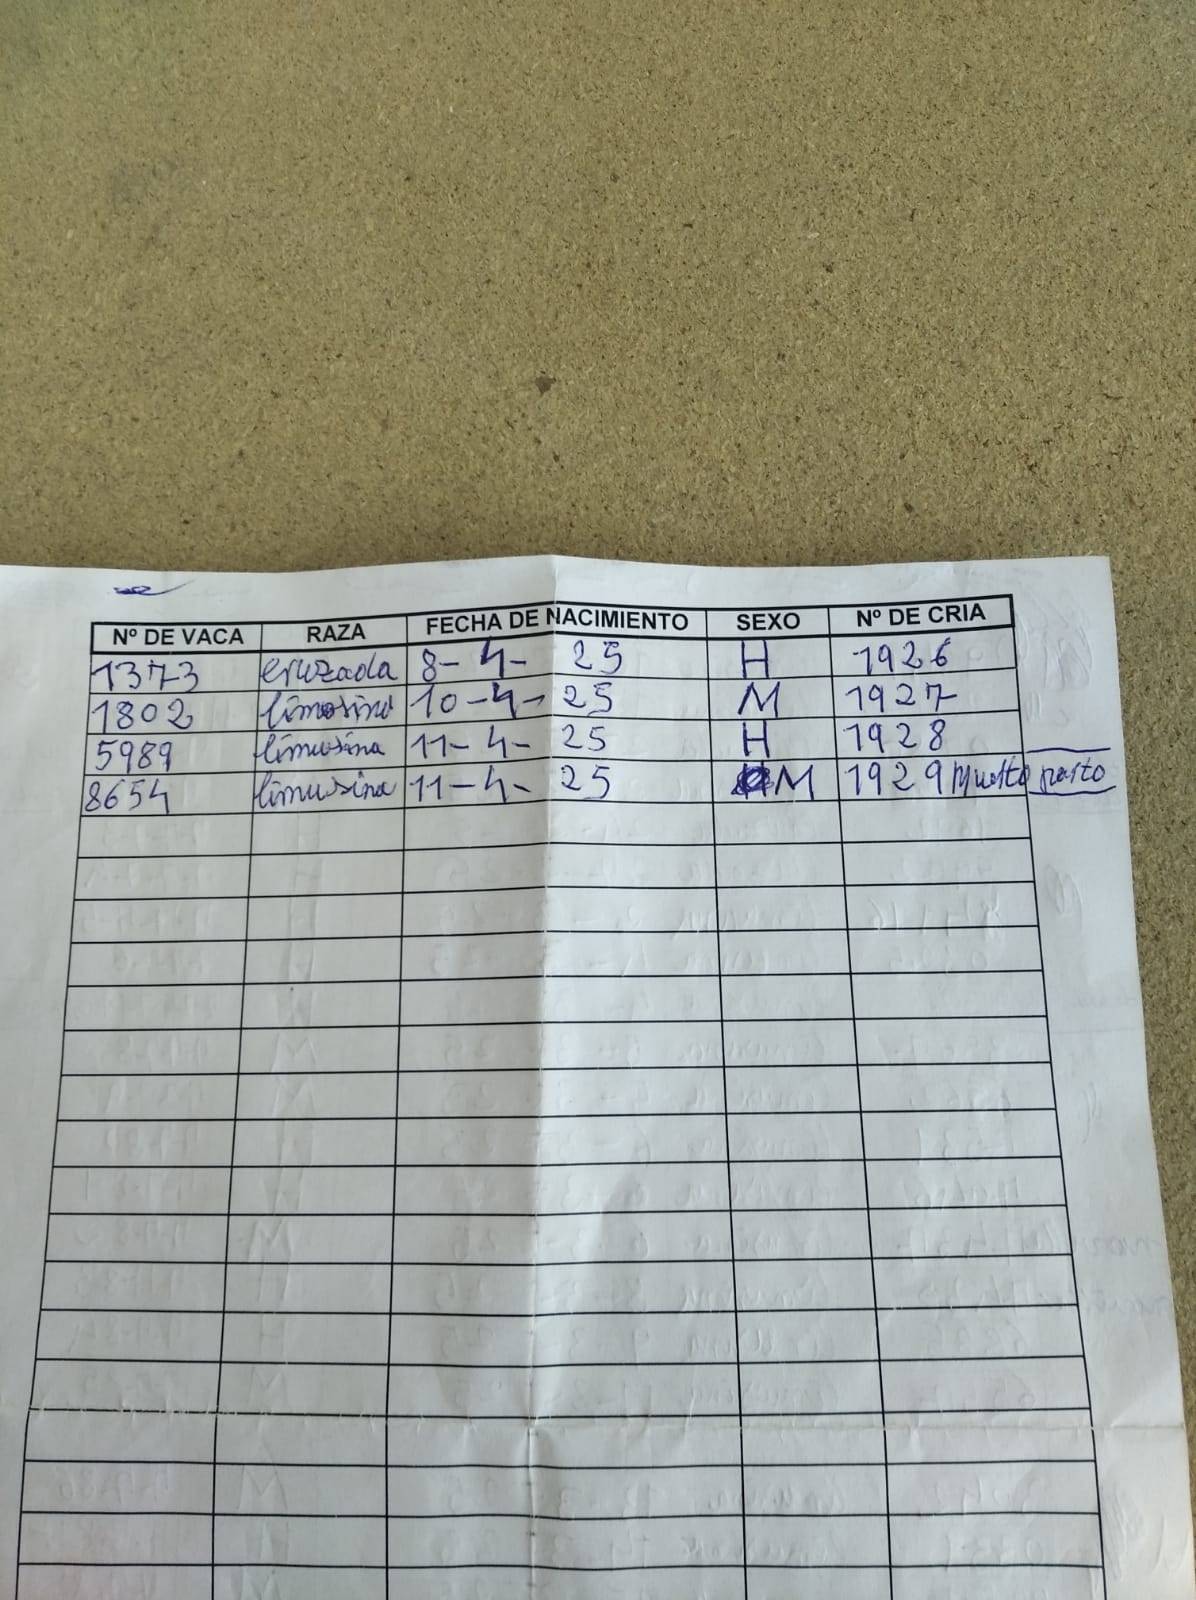 Nº DE VACA RAZA FECHA DE NACIMIENTO SEXO Nº DE CRIA
1373 cruzada 8-4-25 H 1926
1802 limosino 10-4-25 M 1927
5989 limusina 11-4-25 H 1928
8654 limusina 11-4-25 M 1929 Muerto parto